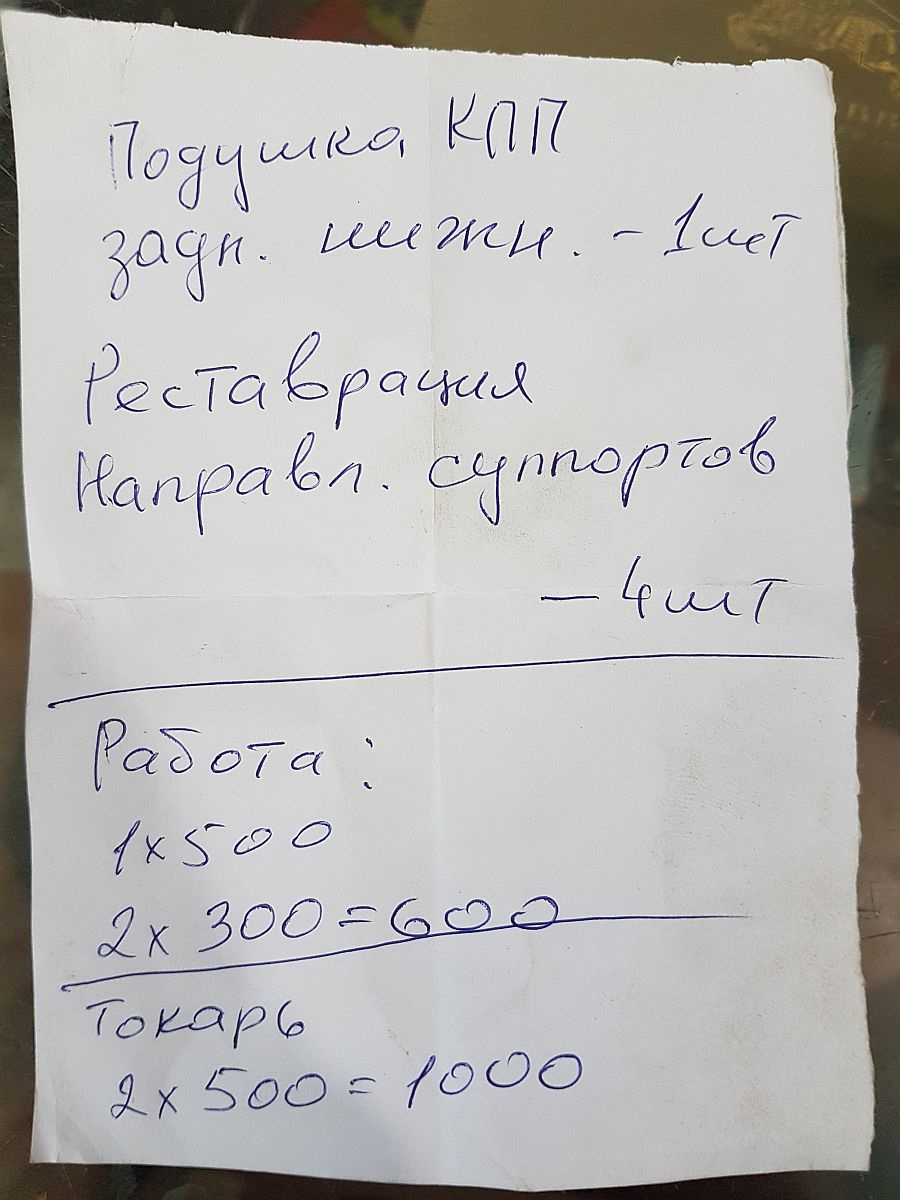 Подушка КПП
задн. нижн. - 1шт
Реставрация
Направл. суппортов
- 4шт
Работа:
1x500
2x 300=600
Токарь
2x 500= 1000